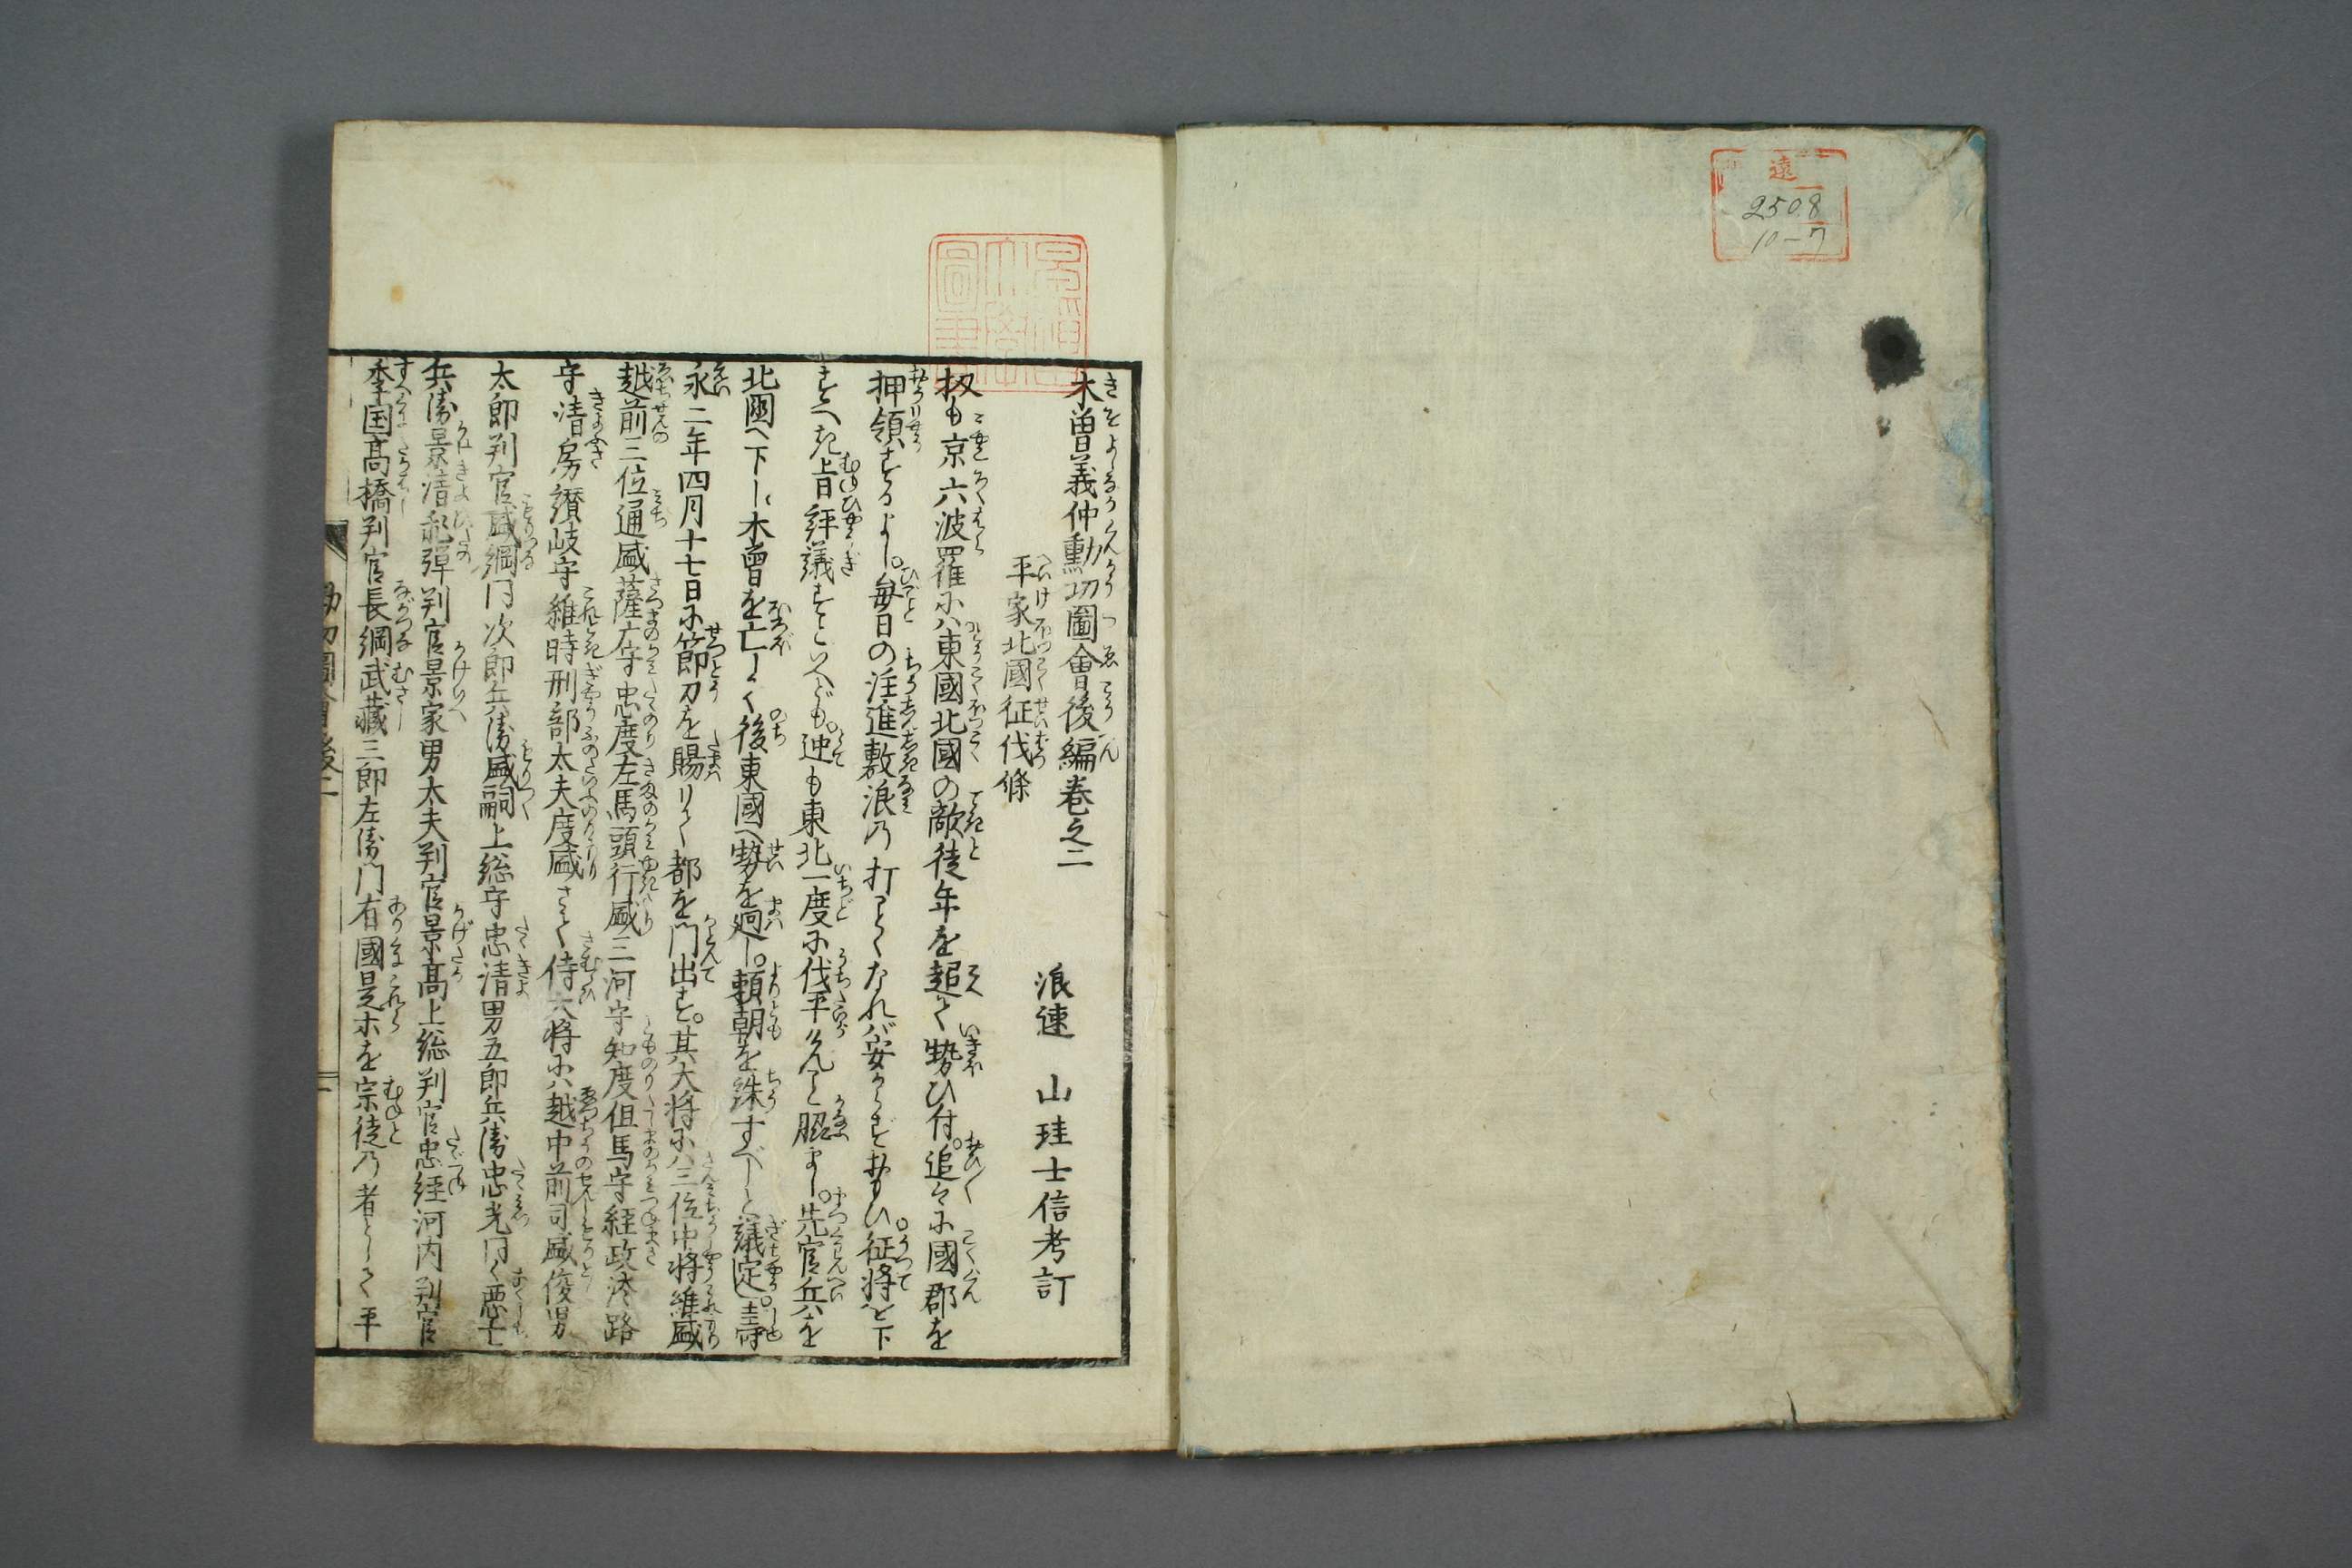 遠
2508
10-7
木曽義仲勳功圖會後編巻之二
浪速 山珪士信考訂
平家北國征伐條
扨も京六波羅にハ東國北國の敵徒年を超て勢ひ付。追々に國郡を
押領するよし。毎日の注進敷浪の打ことくなれバ安からずおもひ。征將を下
すへき旨評議すといへども。迚も東北一度に伐平けんこと
北國へ下し木曽を亡して後東國へ勢を廻し。頼朝を誅すべしと議定し。壽
永二年四月十七日に節刀を賜りて都を門出す。其大将にハ三位中将維盛
越前三位通盛薩广守忠度左馬頭行盛三河守知度但馬守経政淡路
守清房讃岐守維時刑部太夫度盛さて侍大将にハ越中前司盛俊男
太郎判官盛綱同次郎兵衛盛嗣上総守忠清男五郎兵衛忠光同く悪七
兵衛景清飛弾判官景家男太夫判官景高上総判官忠経河内判官
季国高橋判官長綱武蔵三郎左衛門有國是ホを宗徒の者として平
勲功圖會後二
一